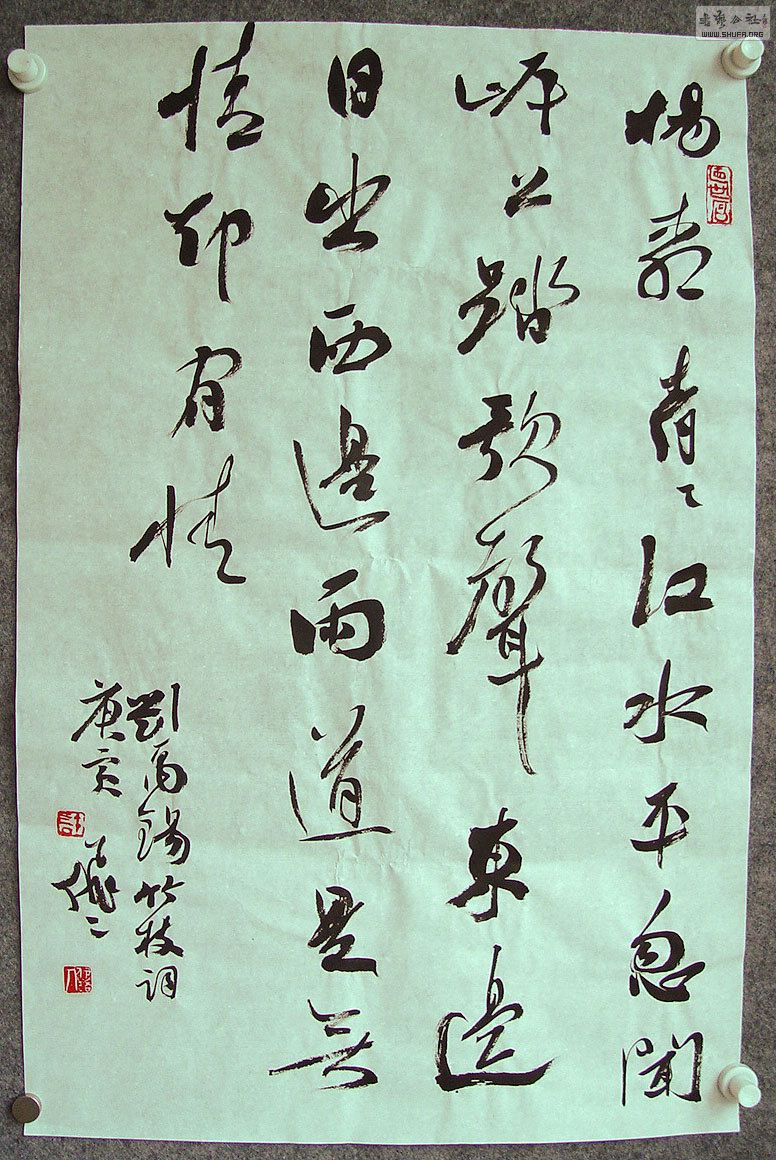 楊柳青〻江水平忽聞
岸上踏歌聲東邊
日出西邊雨道是無
情却有情
劉禹錫竹枝詞
庚寅
WWW.SHUFA.ORG